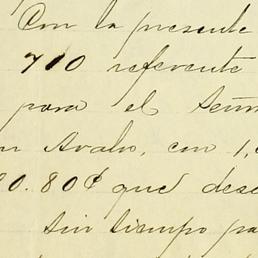 Con la presente
710 referente
para el Señ
n Avalos, con 1,
90.80¢ que dese
sin tiempo pa